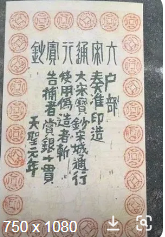 大宋通行寶鈔
户部
奏准印造
大宋寶鈔宋城通行
使用偽造者斬
告捕者賞銀十貫
天聖元年
750 x 1080